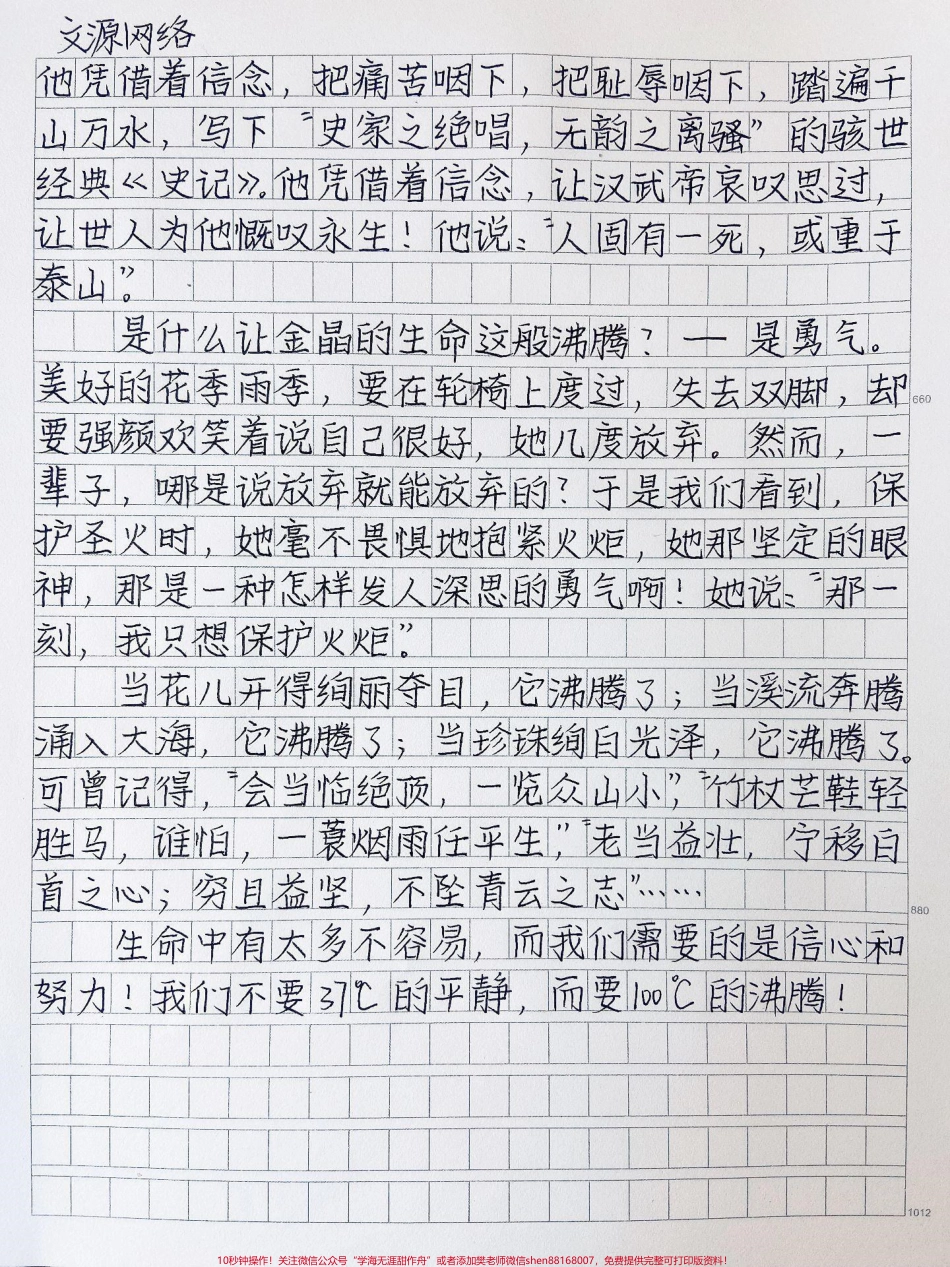 文源网络
他凭借着信念，把痛苦咽下，把耻辱咽下，踏遍千
山万水，写下“史家之绝唱，无韵之离骚”的骇世
经典《史记》。他凭借着信念，让汉武帝哀叹思过，
让世人为他慨叹永生！他说：“人固有一死，或重于
泰山”。
是什么让金晶的生命这般沸腾？—是勇气。
美好的花季雨季，要在轮椅上度过，失去双脚，却
660
要强颜欢笑着说自己很好，她几度放弃。然而，一
辈子，哪是说放弃就能放弃的？于是我们看到，保
护圣火时，她毫不畏惧地抱紧火炬，她那坚定的眼
神，那是一种怎样发人深思的勇气啊！她说：“那一
刻，我只想保护火炬”。
当花儿开得绚丽夺目，它沸腾了；当溪流奔腾
涌入大海，它沸腾了；当珍珠绚白光泽，它沸腾了。
可曾记得，“会当临绝顶，一览众山小”，“竹杖芒鞋轻
胜马，谁怕，一蓑烟雨任平生”，“老当益壮，宁移白
首之心；穷且益坚，不坠青云之志”……
880
生命中有太多不容易，而我们需要的是信心和
努力！我们不要37℃的平静，而要100℃的沸腾！
1012
10秒钟操作！关注微信公众号“学海无涯甜作舟”或者添加樊老师微信shen88168007，免费提供完整可打印版资料！